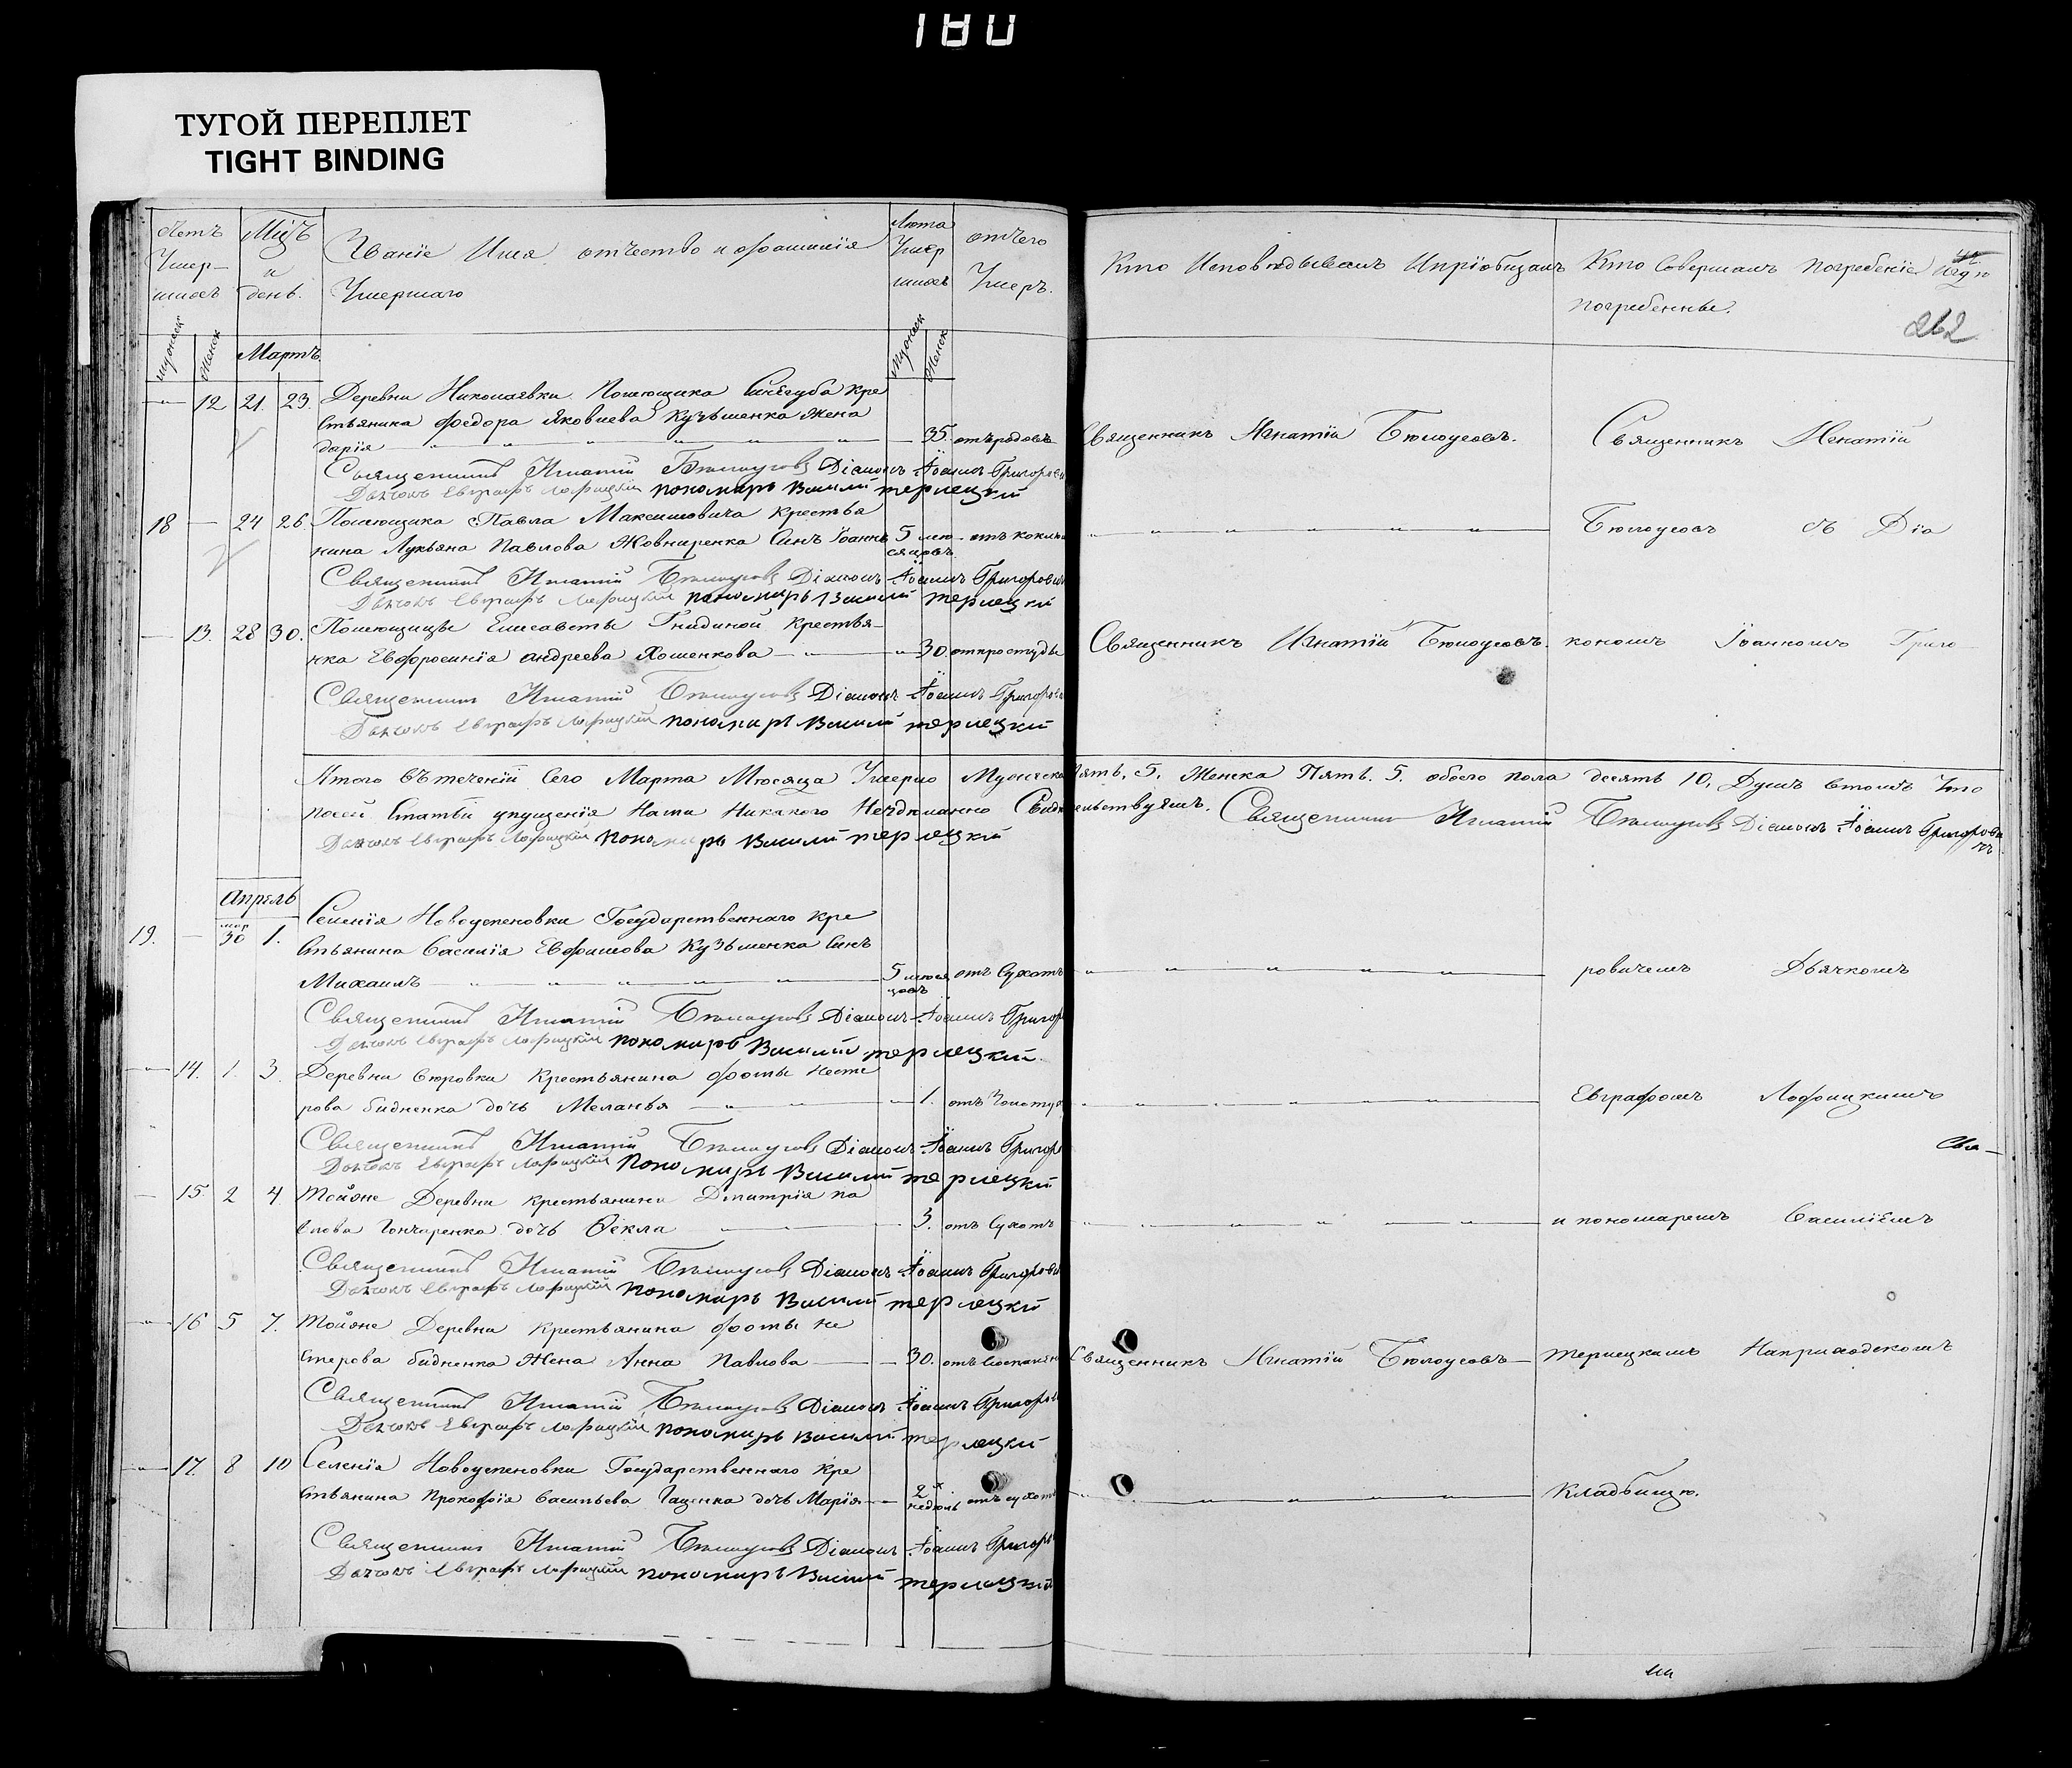 180
ТУГОЙ ПЕРЕПЛЕТ
TIGHT BINDING
Умер-
шихъ
Мцъ
и
день.
Званіе Имя отчество и фамилія
Умершаго
Лѣта
Умер
шихъ
отчего
Умеръ.
Кто Исповѣдывалъ И пріобщалъ
Кто Совершалъ погребеніе
погребенны.
262
Мартъ
12 21. 23. Деревни Николаевки Помещика Синегуба кре
стьянина Федора Яковлева Кузьменка жена
дарія 35. отъ родовъ
Священникъ Игнатій Бѣлоусовъ.
Священникъ Игнатій
Священникъ Игнатій Бѣлоусовъ Діаконъ Іоаннъ Григорови
Дьячокъ Евграфъ Лофицкій пономарь Василій терлецкій
18 24 26. Помещика Павла Максимовича крестья
нина Лукьяна Павлова Жовниренка Синъ Іоаннъ 5 мѣ
сяцовъ
Бѣлоусовъ съ Діа
Священникъ Игнатій Бѣлоусовъ Діаконъ Іоаннъ Григорови
Дьячокъ Евграфъ Лофицкій пономарь Василій терлецкій
13. 28 30. Помещицы Елисаветы Гнединой крестья-
нка Евфросинія андреева Хоменкова 30. отпростуды
Священникъ Игнатій Бѣлоусовъ.
кономъ Іоанномъ Григо
Священникъ Игнатій Бѣлоусовъ Діаконъ Іоаннъ Григорови
Дьячокъ Евграфъ Лофицкій пономарь Василій терлецкій
Итого въ теченіи Сего Марта Мѣсяца Умерло Мужеска пять. 5. Женска Пять. 5. обоего пола десять 10, Душъ втомъ Что
посей Статьи упущенія Нами Никакого Несдѣланно Свидѣтельствуямъ. Священникъ Игнатій Бѣлоусовъ Діаконъ Іоаннъ Григорови
чъ
Дьячокъ Евграфъ Лофицкій пономарь Василій терлецкій
Апрель
мар
19. 30 1. Селенія Новоуспеновки Государственнаго кре
стьянина Василія Евфимова Кузьменка Синъ
Михаилъ 5 мѣся
цовъ
отъ Сухотъ
ровичемъ Дьячкомъ
Священникъ Игнатій Бѣлоусовъ Діаконъ Іоаннъ Григор
Дьячокъ Евграфъ Лофицкій пономарь Василій терлецкій
14. 1. 3. Деревни крестьянина фомы несте
рова бидненка дочь Меланья 1. отъ Золотух
Евграфомъ Лофицкимъ
Священникъ Игнатій Бѣлоусовъ Діаконъ Іоаннъ Григор
Свя-
Дьячокъ Евграфъ Лофицкій пономарь Василій терлецкій
15 2 4 Тойже Деревни крестьянина Дмитрія па
влова Гончаренка дочь Ѳекла 3. отъ Сухотъ
и пономаремъ Василіемъ
Священникъ Игнатій Бѣлоусовъ Діаконъ Іоаннъ Григорови
Дьячокъ Евграфъ Лофицкій пономарь Василій терлецкій
16 5 7. Тойже Деревни крестьянина фомы не
стерова бидненка Жена Анна Павлова 30.
Священникъ Игнатій Бѣлоусовъ
терлецкимъ Наприходскомъ
Священникъ Игнатій Бѣлоусовъ Діаконъ Іоаннъ Григорови
Дьячокъ Евграфъ Лофицкій пономарь Василій терлецкій
17. 8 10 Селенія Новоуспеновки Государственнаго кре
стьянина Прокофія Васильева Гаценка дочь Марія 2х
недѣль отъ сухотъ
Кладбищѣ.
Священникъ Игнатій Бѣлоусовъ Діаконъ Іоаннъ Григор
Дьячокъ Евграфъ Лофицкій пономарь Василій терлецкій